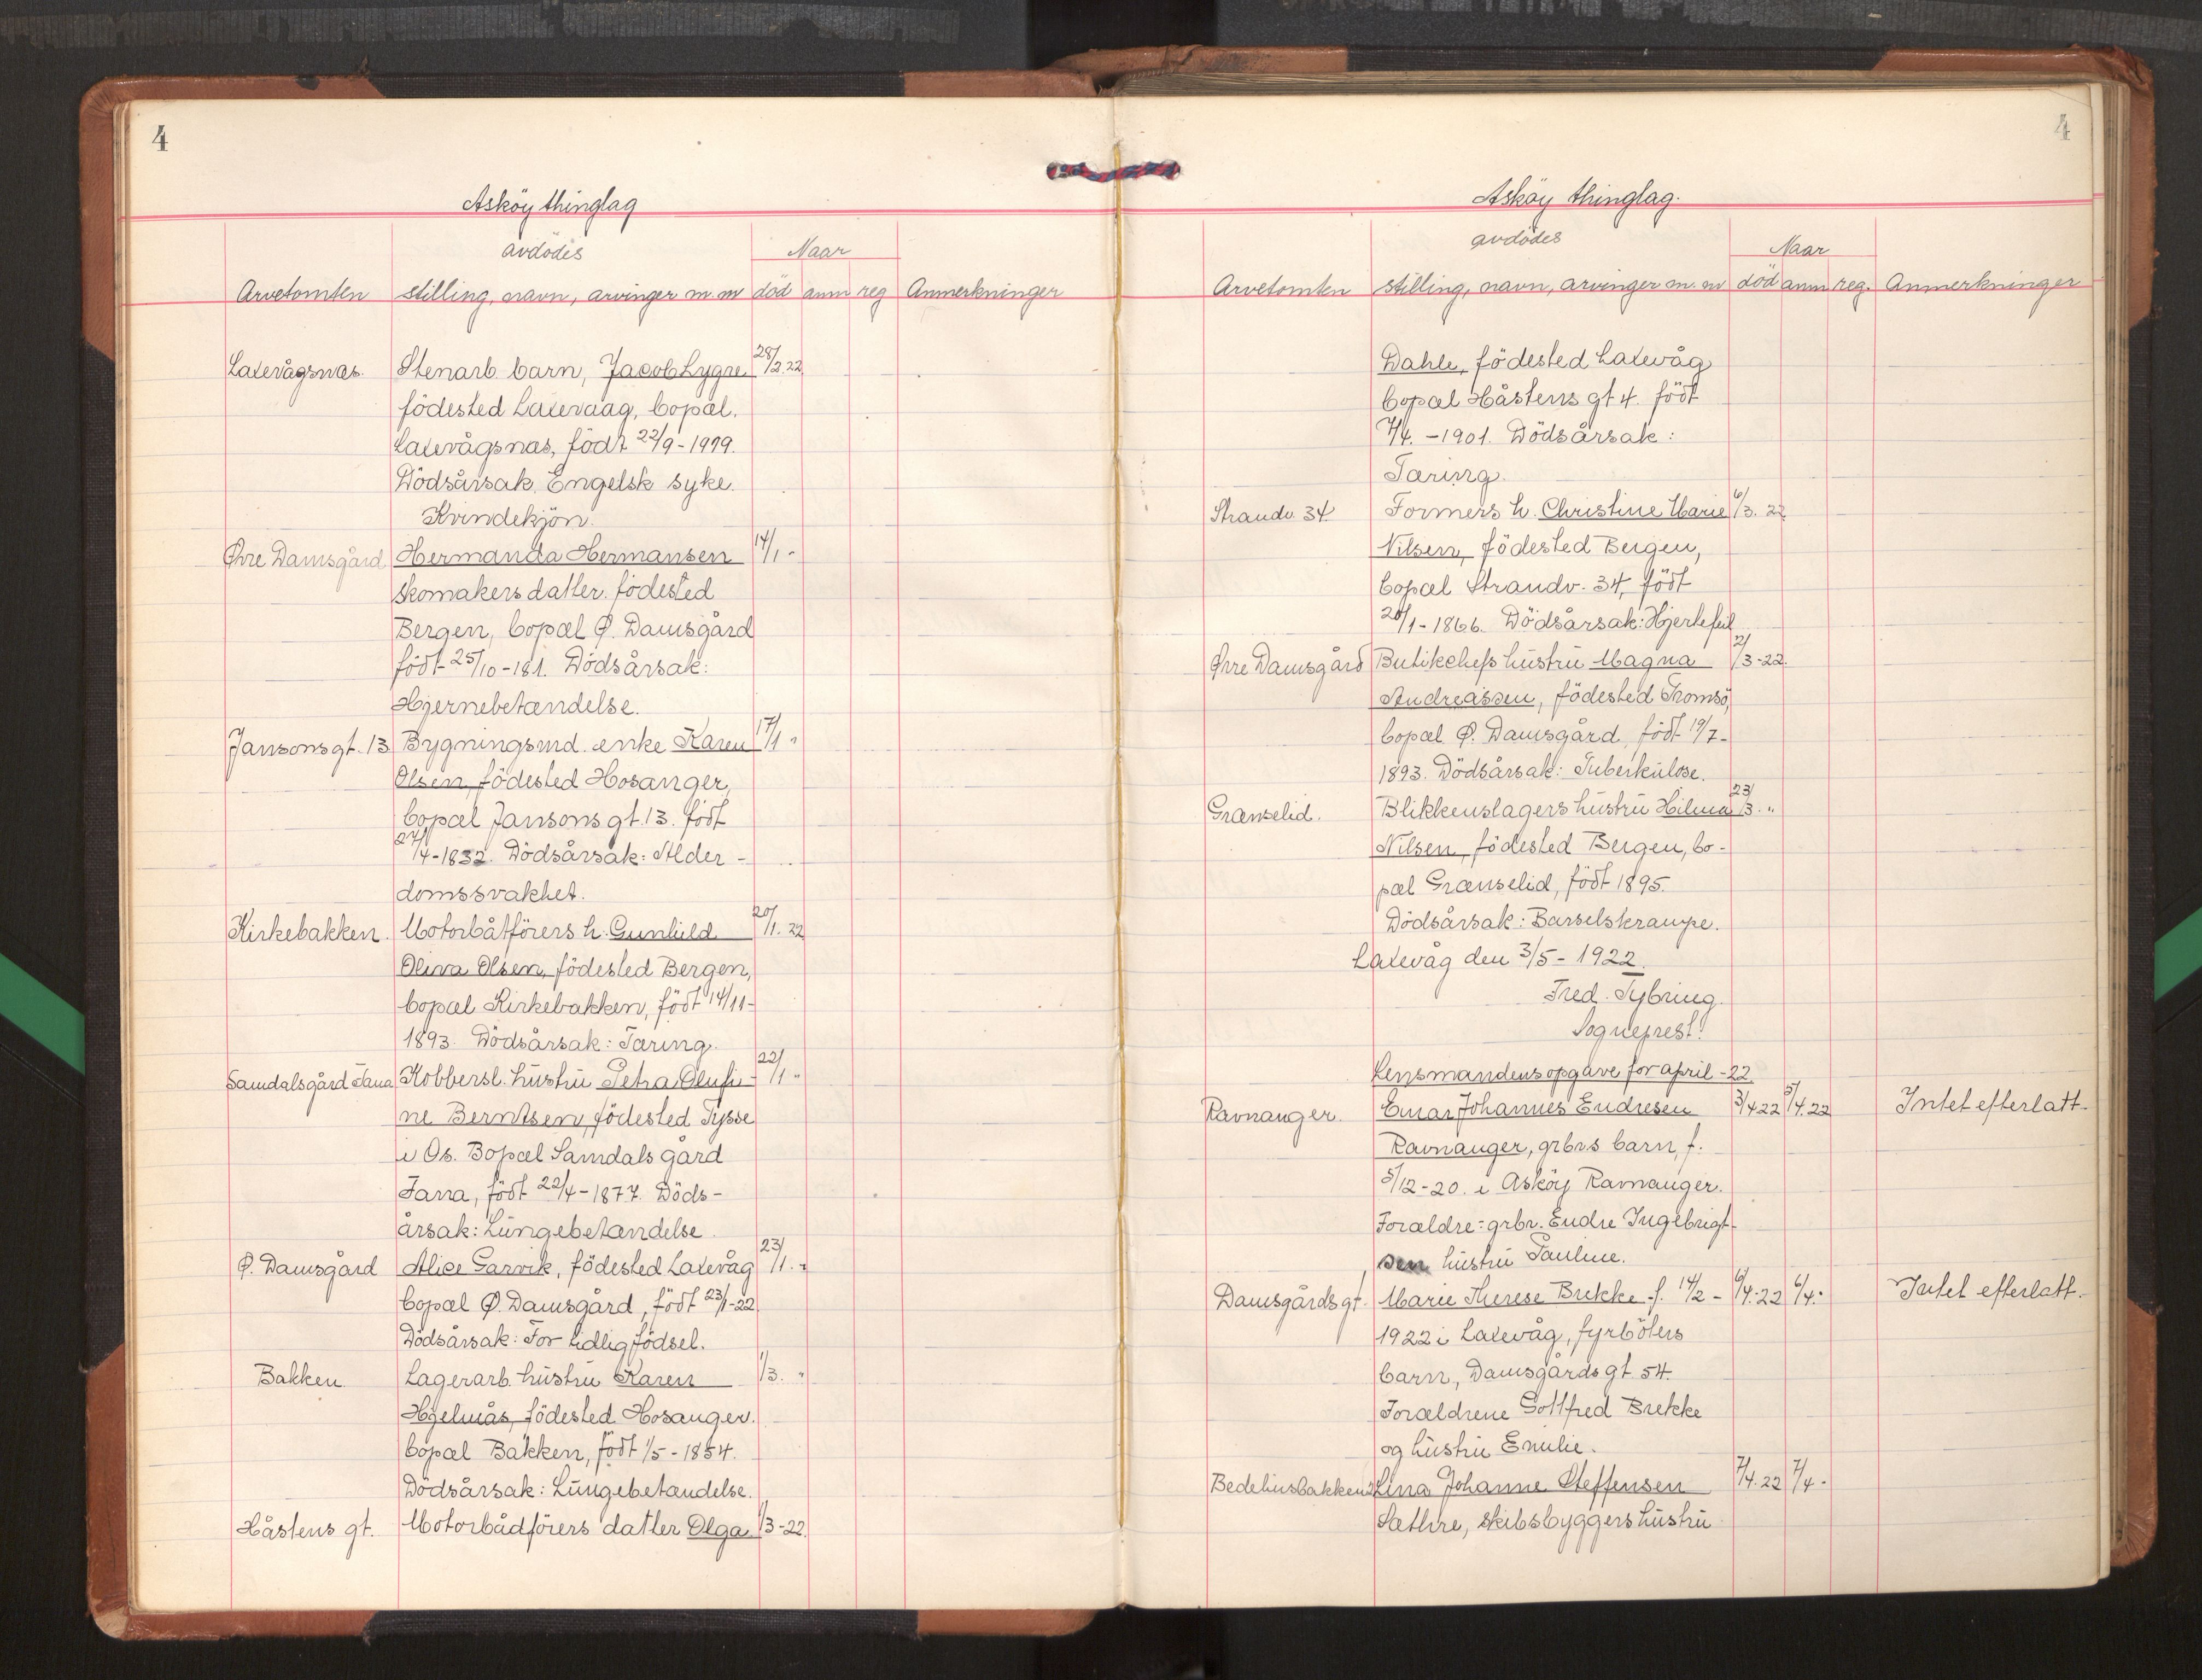 4
Asköy thinglag
avdödes
Naar
Arvetomten stilling, navn, arvinger m. m död anm reg Anmerkninger
Laxevågsnæs. Stenarb. barn, Jacob Lygre 28/2.22
födested Laxevaag, bopæl.
Laxevågsnæs, födt 22/9-1919.
Dödsårsak, Engelsk syke.
Kvindekjön.
Øvre Damsgård Hermanda Hermansen 14/1 "
skomakers datter. födested
Bergen, bopæl Ø. Damsgård
födt 25/10-181. Dödsårsak:
Hjernebetændelse.
Jansonsgt. 13 Bygningsmd. enke Karen 17/1 "
Olsen, födested Hosanger,
bopæl Jansons gt. 13. födt
27/4-1832. Dödsårsak: Alder-
domssvakhet.
Kirkebakken. Motorbåtförers h. Gunhild 20/1.22
Oliva Olsen, födested Bergen,
bopæl Kirkebakken, födt 14/11-
1893. Dödsårsak: Tæring.
Samdalsgård Fana Kobbersl. hustru Petra Olufi- 22/1 "
ne Berntsen, födested Tysse
i Os. Bopæl Samdals gård
Fana, födt 22/4-1877. Döds-
årsak: Lungebetændelse.
Ø. Damsgård Alice Garvik, födested Laxevåg 23/1. "
bopæl Ø. Damsgård, födt 23/1-22
Dödsårsak: For tidlig födsel.
Bakken Lagerarb. hustru Karen 1/3. "
Hjelmås, födested Hosanger.
bopæl Bakken, födt 1/5-1854.
Dödsårsak: Lungebetændelse.
Håstens gt. Motorbådförers datter Olga 1/3-22.
4
Asköy thinglag.
avdödes
Naar
Arvetomten stilling, navn, arvinger m. m död anm reg. Anmerkninger
Dahle, födested Laxevåg
bopæl Håstens gt 4. födt
7/4.-1901. Dödsårsak:
Tæring.
Strandv. 34. Formers h. Christine Marie 6/3. 22
Nilsen, födested Bergen,
bopæl Strandv. 34, födt
20/1-1866. Dödsårsak: Hjertefeil
Øvre Damsgård Butikchefs hustru Magna 2/3-22.
Andreassen, födested Tromsö,
bopæl Ø. Damsgård, födt 19/7-
1893. Dödsårsak: Tuberkulose.
Grænselid. Blikkenslagers hustru Hilma 23/3. "
Nilsen, födested Bergen, bo-
pæl Grænselid, födt 1895.
Dödsårsak: Barselskrampe.
Laxevåg den 3/5-1922.
Fred. Tybring.
Sogneprest.
Lensmandens opgave for april-22.
Ravnanger. Einar Johannes Endresen 3/4 22 5/4.22 Intet efterlatt.
Ravnanger, grbrs barn, f.
5/12-20. i Asköy Ravnanger.
Forældre: grbr. Endre Ingebrigt-
sen hustru Pauline.
Damsgårds gt. Marie Therese Brekke f. 14/2- 6/4.22 6/4." Intet efterlatt.
1922 i Laxevåg, fyrböters
barn, Damsgårds gt 54.
Forældrene Gottfred Brekke
og hustru Emilie.
Bedehusbakken Lina Johanne Steffensen 7/4.22 7/4-
Sæthre, skibsbyggers hustru